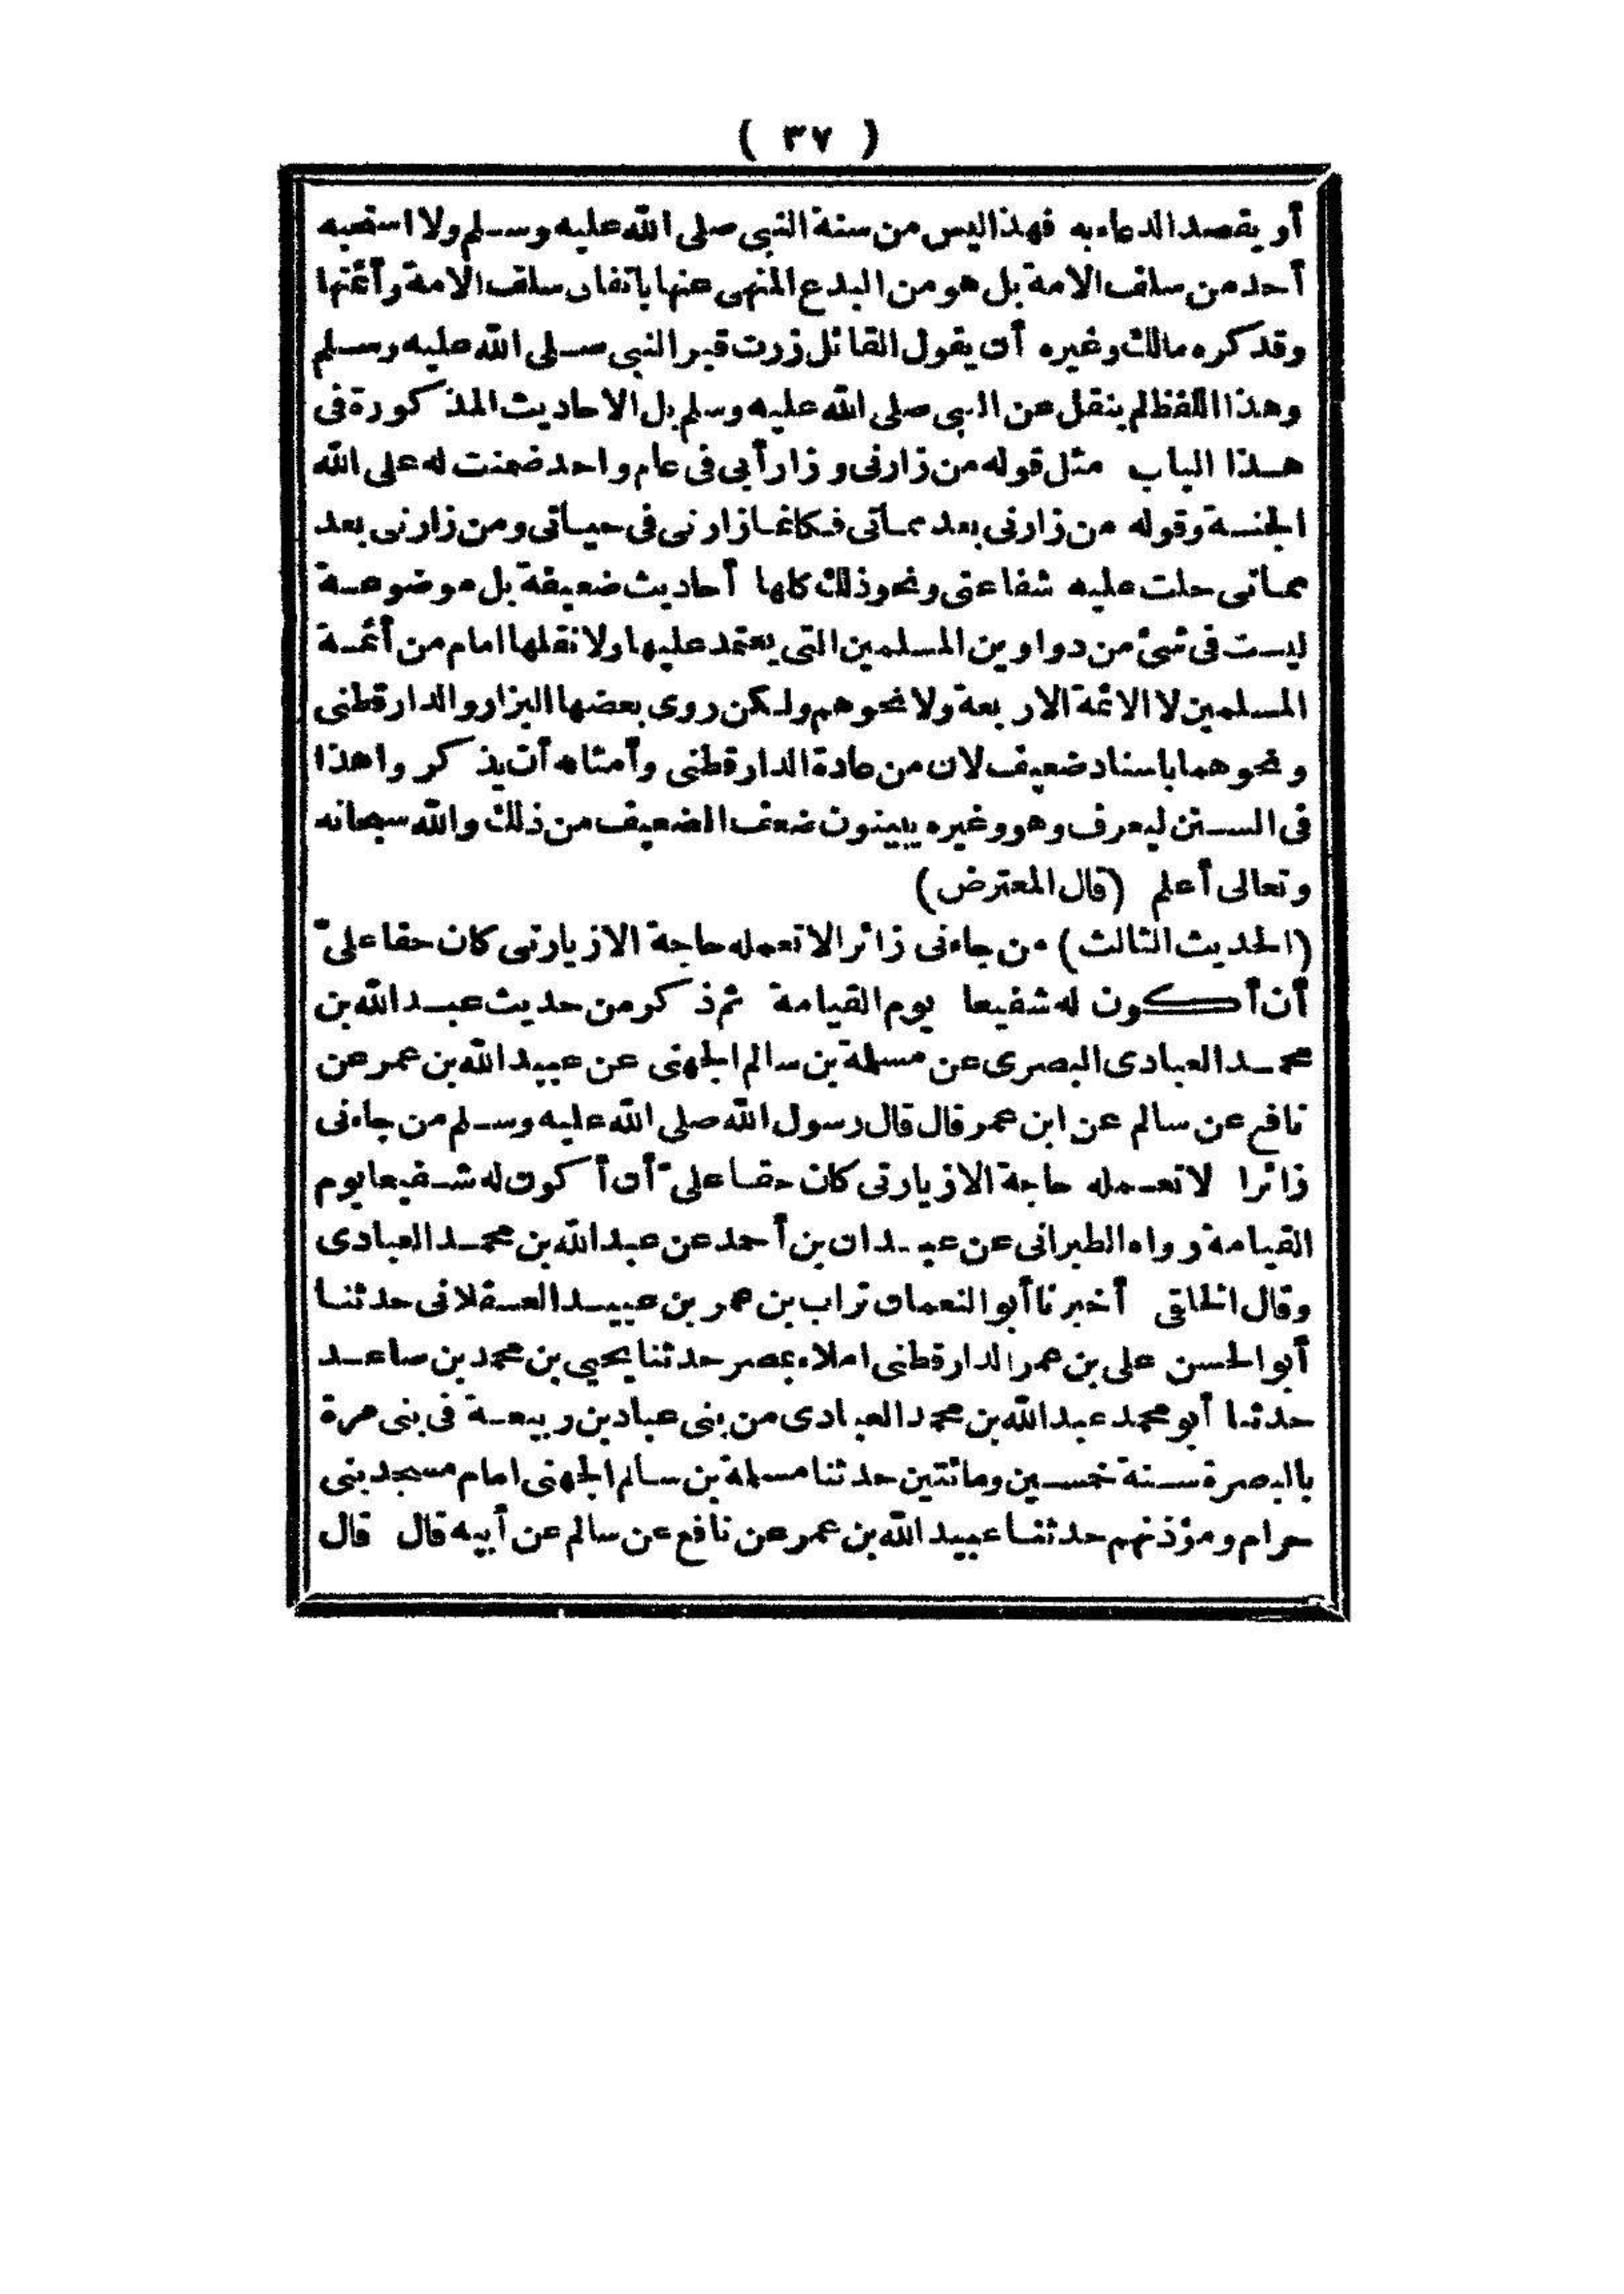 ( ٣٧ )
أو يقصد الدعاء به فهذا ليس من سنة النبي صلى الله عليه وسلم ولا استحبه
أحد من سلف الامة بل هو من البدع المنهى عنها باتفاق سلف الامة وأئمتها
وقد كره مالك وغيره أن يقول القائل زرت قبر النبي صلى الله عليه وسلم
وهذا اللفظ لم ينقل عن النبي صلى الله عليه وسلم بل الاحاديث المذكورة فى
هذا الباب مثل قوله من زارنى وزار أبى فى عام واحد ضمنت له على الله
الجنة وقوله من زارنى بعد مماتى فكانما زارنى فى حياتى ومن زارنى بعد
مماتى حلت عليه شفاعتى ونحو ذلك كلها أحاديث ضعيفة بل موضوعة
ليست فى شئ من دواوين المسلمين التى يعتمد عليها ولا نقلها امام من أئمة
المسلمين لا الائمة الاربعة ولا نحوهم ولكن روى بعضها البزار والدارقطنى
ونحوهما باسناد ضعيف لان من عادة الدارقطنى وأمثاله أن يذكروا هذا
فى السنن ليعرف وهو وغيره يبينون ضعف الضعيف من ذلك والله سبحانه
وتعالى أعلم (قال المعترض)
(الحديث الثالث) من جاءنى زائرا لا تعمله حاجة الا زيارتى كان حقا علىّ
أن أكون له شفيعا يوم القيامة ثم ذكر من حديث عبد الله بن
محمد العبادى البصرى عن مسلمة بن سالم الجهنى عن عبيد الله بن عمر عن
نافع عن سالم عن ابن عمر قال قال رسول الله صلى الله عليه وسلم من جاءنى
زائرا لا تعمله حاجة الا زيارتى كان حقا علىّ أن أكون له شفيعا يوم
القيامة رواه الطبرانى عن عبدان بن أحمد عن عبد الله بن محمد العبادى
وقال الخلعى أخبرنا أبو النعمان تراب بن عمر بن عبيد العسقلانى حدثنا
أبو الحسن على بن عمر الدارقطنى املاء بمصر حدثنا يحيى بن محمد بن صاعد
حدثنا أبو محمد عبد الله بن محمد العبادى من بنى عباد بن ربيعة فى بنى مرة
بالبصرة سنة خمسين ومائتين حدثنا مسلمة بن سالم الجهنى امام مسجد بنى
حرام ومؤذنهم حدثنا عبيد الله بن عمر عن نافع عن سالم عن أبيه قال قال